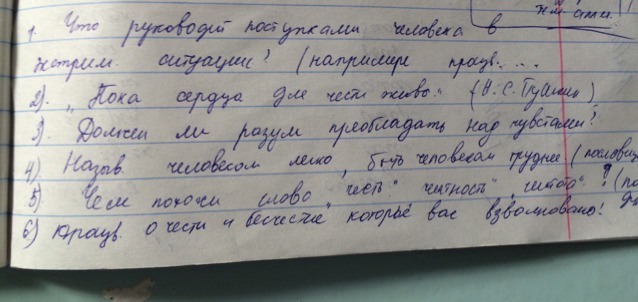 нт. стил.
1. Что руководит поступками человека в
экстрим. ситуации? (например произв....
2). "Пока сердца для чести живы." (А. С. Пушкин)
3). Должен ли разум преобладать над чувствами?
4) Назыв. человеком легко, быть человеком труднее (пословиц
5). Чем похожи слово "честь" "честность", ? (по
6) произв. о чести и бесчестие которые вас взволновано!